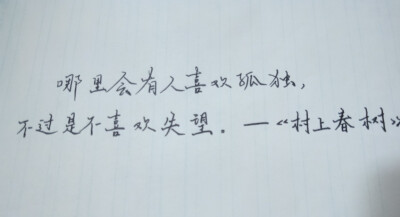 哪里会有人喜欢孤独，
不过是不喜欢失望。—《村上春树》